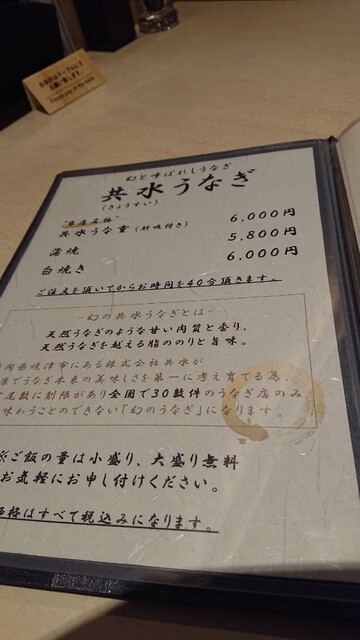 幻と呼ばれしうなぎ
共水うなぎ
(きょうすい)
共水うな重(肝吸付き) 6,000円
蒲焼 5,800円
白焼き 6,000円
ご注文を頂いてからお時間を40分頂きます。
-幻の共水うなぎとは-
天然うなぎのような甘い肉質と香り、
天然うなぎを越える脂ののりと旨味。
岡県焼津市にある株式会社共水が
でうなぎ本来の美味しさを第一に考え育てる為、
尾数に制限があり全国で30数件のうなぎ店のみ
味わうことのできない「幻のうなぎ」になります。
※ご飯の量は小盛り、大盛り無料
お気軽にお申し付けください。
価格はすべて税込みになります。